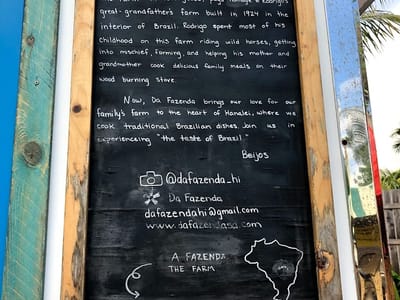 farm pays homage to Rodrigo's
great-grandfather's farm built in 1924 in the
interior of Brazil. Rodrigo spent most of his
childhood on this farm riding wild horses, getting
into mischief, farming, and helping his mother and
grandmother cook delicious family meals on their
wood burning stove.
Now, Da Fazenda brings our love for our
family's farm to the heart of Hanalei, where we
cook traditional Brazilian dishes. Join us in
experiencing "the taste of Brazil."
Beijos
@dafazenda_hi
Da Fazenda
dafazendahi@gmail.com
www.dafazenda.com
A FAZENDA
THE FARM